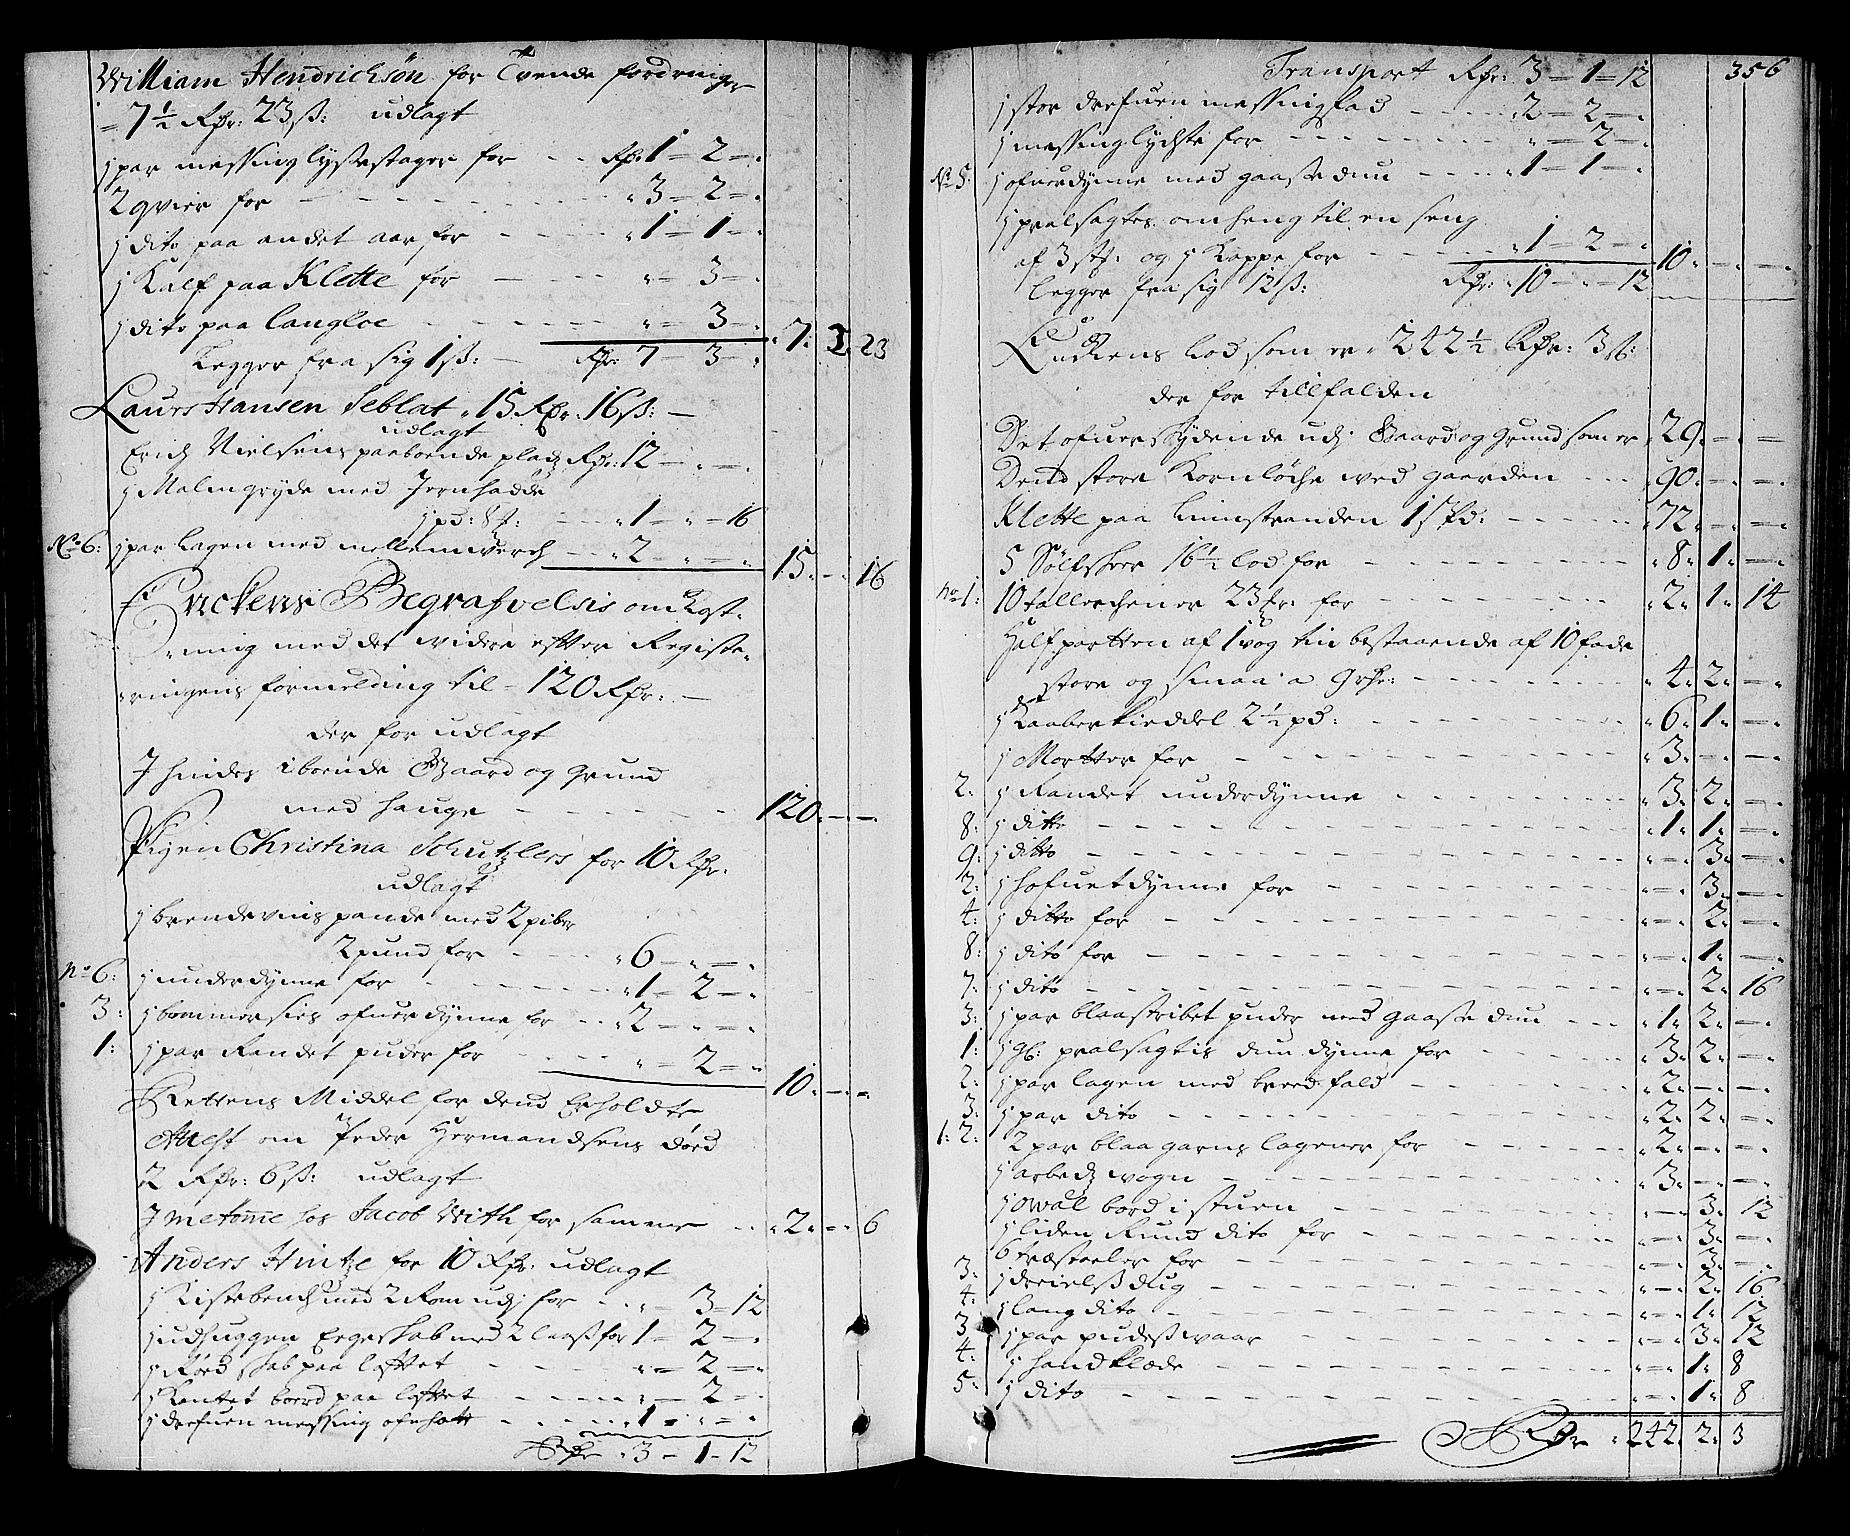 William Hendrichsøn for Tvende fordringer
= 7½ Rdr: 23 ß: udlagt
1 par messing lysestager for - - Rdr 1 = 2 = "
2 qvier for - - - " 3 = 2 = "
1 dito paa andet aar for - - " 1 = 1 = "
1 Kalf paa Klette for - - " = 3 = "
1 dito paa Langloe - - " = 3 = " 7. 2. 23
Legger fra sig 1 ß: - Rdr: 7 3 "
Laurs Hansen Seblat, 15 Rdr: 16 ß: -
udlagt
Erich Nielsens paaboende pladz Rdr: 12 = " = "
1 Malmgryde med Jernhadde
1 pd: 8 - - " 1 = " = 16
No 6: 1 par lagen med mellemverch - " 2 = " = " 15. - 16
Enckens Begrafvelsis omkost-
ning med det widere effter Registe-
ringens formelding til - 120 Rdr: -
der for udlagt
J hindes iboende Gaard og Grund
med hauge - - - 120. - -
Pigen Christina Schutzlers for 10 Rdr:
udlagt
1 brendeviins pande med 2 piber
2 pund for - - " 6 = " = "
No 6: 1 underdynne for - - " 1 = 2 = "
3: 1 bommersies ofuerdynne for - - " 2 = " = "
1: 1 par Randet puder for - - " = 2 = " 10. - -
Rettens Middel for dend Erholdte
Attest om Peder Hermandsens død
2 Rdr: 6 ß: udlagt
J hos Jacob With for samme - - 2. - 6
Anders Hintze for 10 Rdr: udlagt
1 Kistebench med 2 Rom udj for - - " = 3 = 12
1 udhuggen Egeskab med 2 laaß for 1 = 2 = "
1 Rød skab paa lofftet - - " = 2 = "
1 Kantet bord paa lofftet - - " = 2 = "
1 drefuen messing - - " 1 = " = "
Rdr " 3 = 1 = 12
Transport Rdr: 3 = 1 = 12 356
1 stor drefuen messingfad - - " 2 = 2 = "
1 messing lychte for - - " = 2 = "
No 5. 1 ofuerdynne med gaasse duun - - " 1 = 1 = "
1 omheng til en seng
af 3 st: og 1 Kappe for - - " 1 = 2 = " 10. - -
legger fra sig 12 ß: Rdr: " 10 = " = 12
Enckens lod som er " 242½ Rdr: 3 ß:
der for tillfalden
Det ofuerskydende udj Gaard og Grund som er " 29. - -
Dend store Kornløche wed gaarden - - " 90. - -
Klette paa Limstranden 1 Spd: - - " 72. - -
5 Sølfskeer 16½ lod for - - " 8. 1. -
No 1: 10 tallerchener 23 for - - " 2. 1. 14
Halfpartten af 1 vog tin bestaaende af 10 fade
store og smaa a - - " 4. 2. -
1 Kaaberkieddel 2½ pd: - - " 6. 1. -
1 Mortter for - - " 3. - -
2. 1 Randet underdynne - - " 3. 2. -
8: 1 ditto - - " 1. 1. -
9: 1 ditto - - " - 3. -
2: 1 hofuetdynne for - - " - 3. -
4: 1 ditto for - - " - 2. -
8: 1 dito for - - " - 1. -
7: 1 dito - - " - 2. 16
3: 1 par blaastribet puder med gaasse duun - - " 1. 2. -
1: 1 duun dynne for - - " 3. 2. -
2: 1 par lagen med breed fald - - " 2. - -
3: 1 par dito - - " 2. 2. -
1: 2: 2 par blaa garns lagener for - - " 2. - -
1 arbeidz wogn - - " 3. - -
1 owal bord i stuen - - " - 3. 12
1 liden Rund dito for - - " - 3. -
6 træstoeler for - - " - 3. -
3: 1 dreielß dug - - " - 2. 16
4: 1 lang dito - - " - 1. 12
3: 1 par pudeßwaar - - " - 3. 12
4: 1 handklæde - - " - 1. 8
5: 1 dito - - " - 1. 8
Rdr " 242. 2. 3